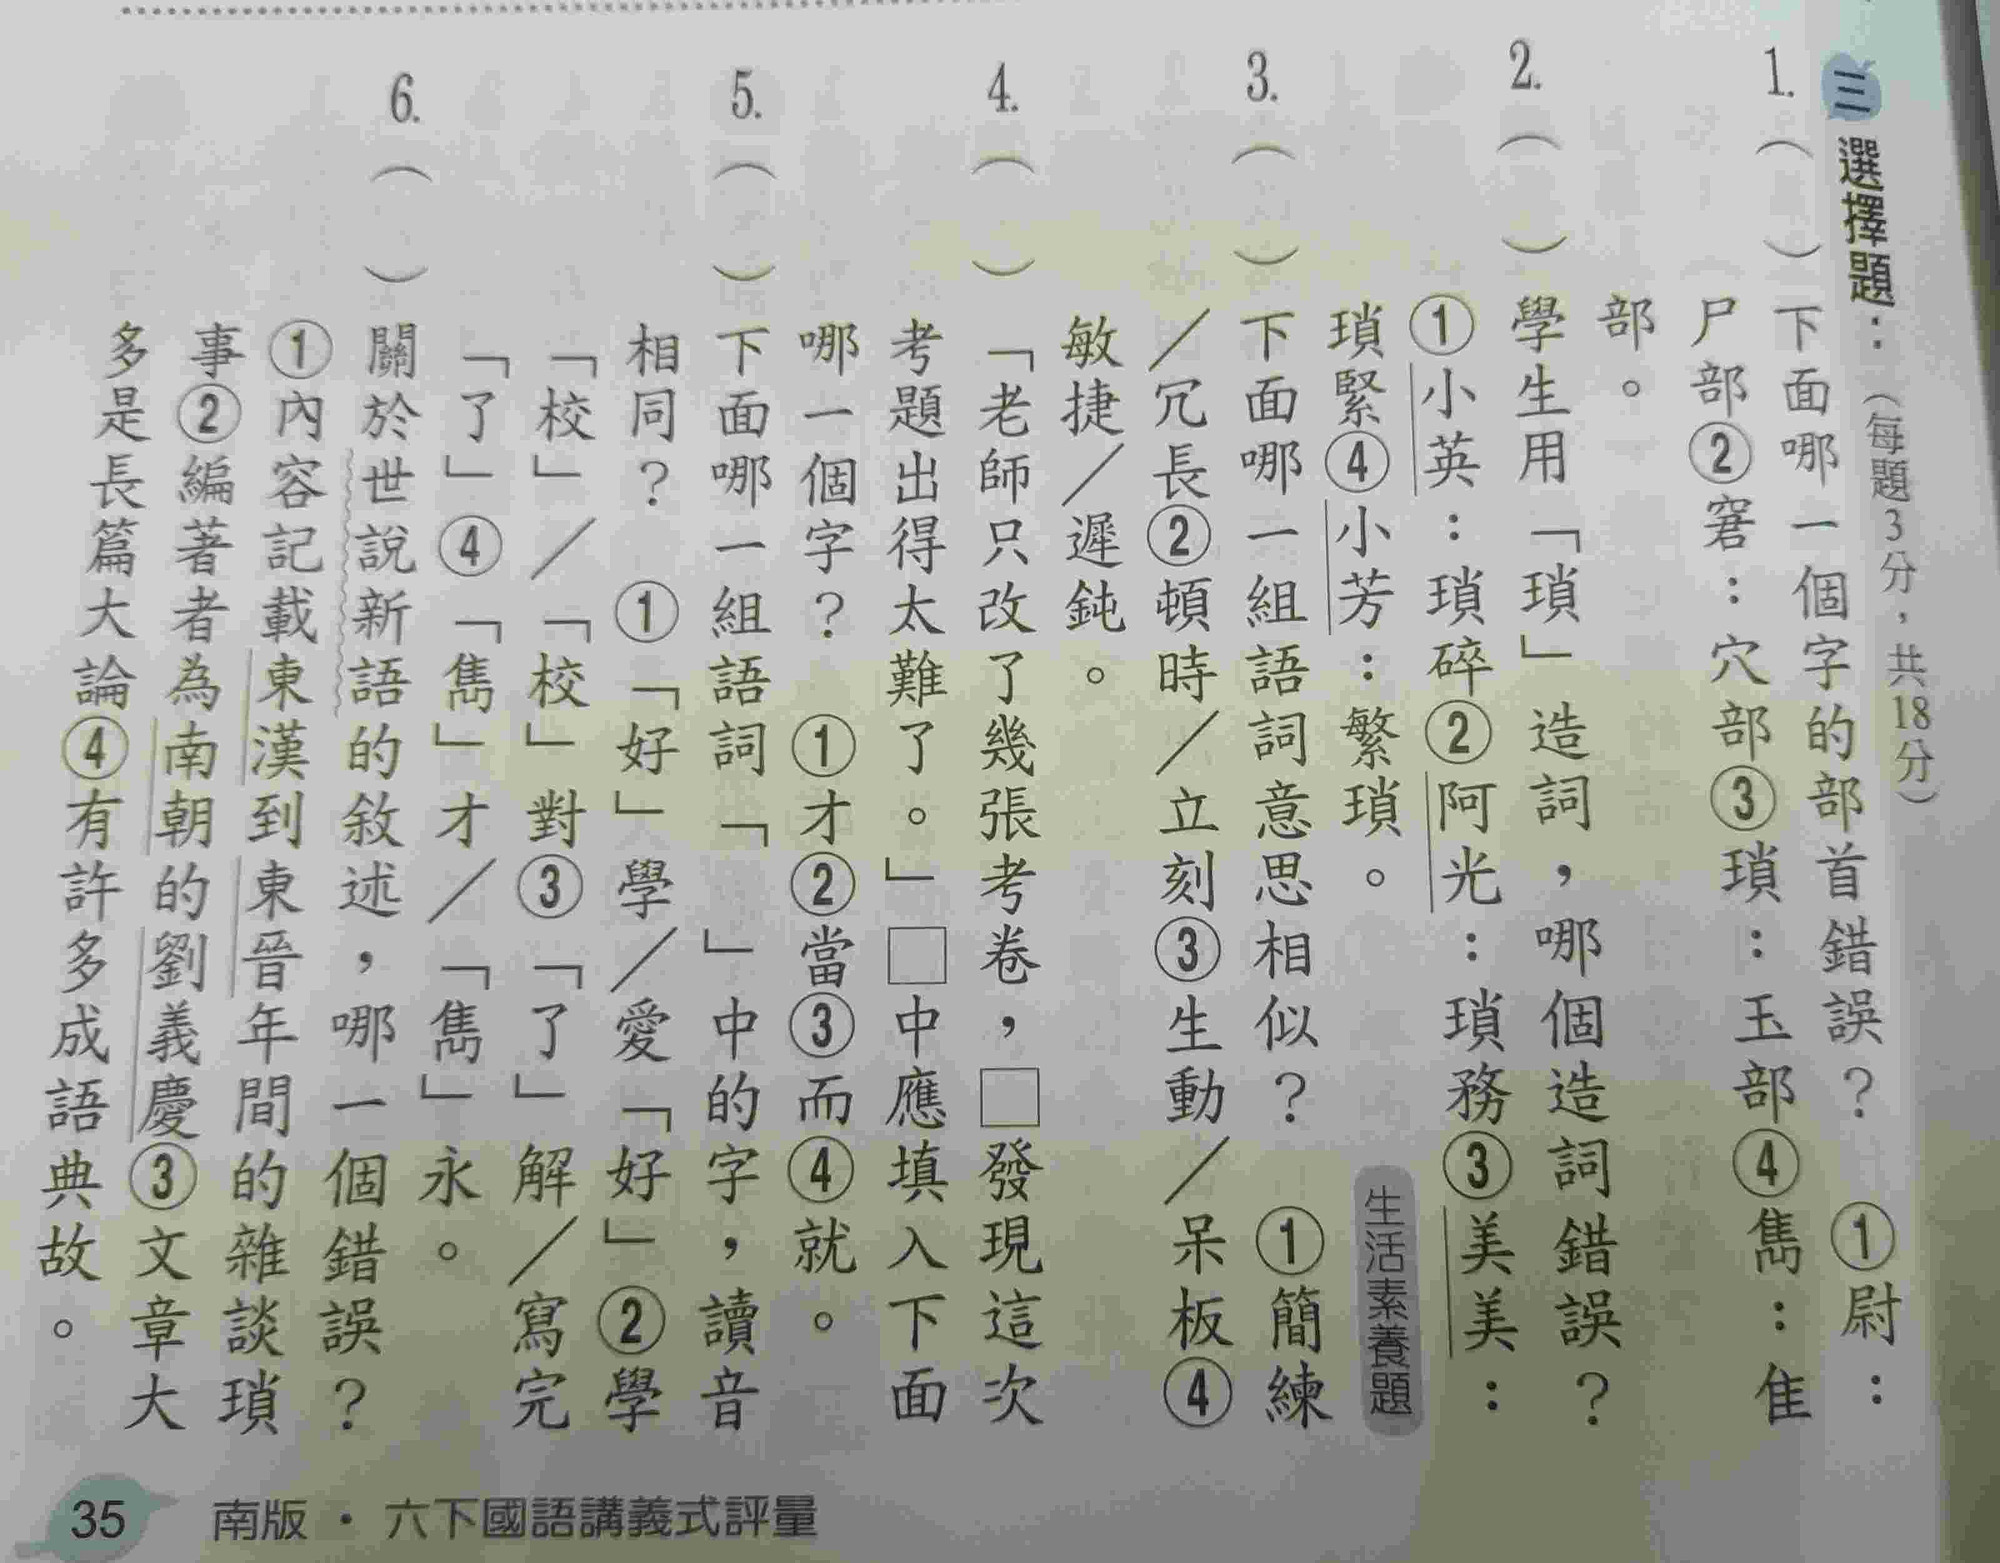 三 選擇題：（每題3分，共18分）
1.（　）下面哪一個字的部首錯誤？　①尉：
尸部②窘：穴部③瑣：玉部④雋：隹
部。
2.（　）學生用「瑣」造詞，哪個造詞錯誤？
①小英：瑣碎②阿光：瑣務③美美：
瑣緊④小芳：繁瑣。
生活素養題
3.（　）下面哪一組語詞意思相似？　①簡練
／冗長②頓時／立刻③生動／呆板④
敏捷／遲鈍。
4.（　）「老師只改了幾張考卷，□發現這次
考題出得太難了。」□中應填入下面
哪一個字？　①才②當③而④就。
5.（　）下面哪一組語詞「　」中的字，讀音
相同？　①「好」學／愛「好」②學
「校」／「校」對③「了」解／寫完
「了」④「雋」才／「雋」永。
6.（　）關於世說新語的敘述，哪一個錯誤？
①內容記載東漢到東晉年間的雜談瑣
事②編著者為南朝的劉義慶③文章大
多是長篇大論④有許多成語典故。
35 南版・六下國語講義式評量